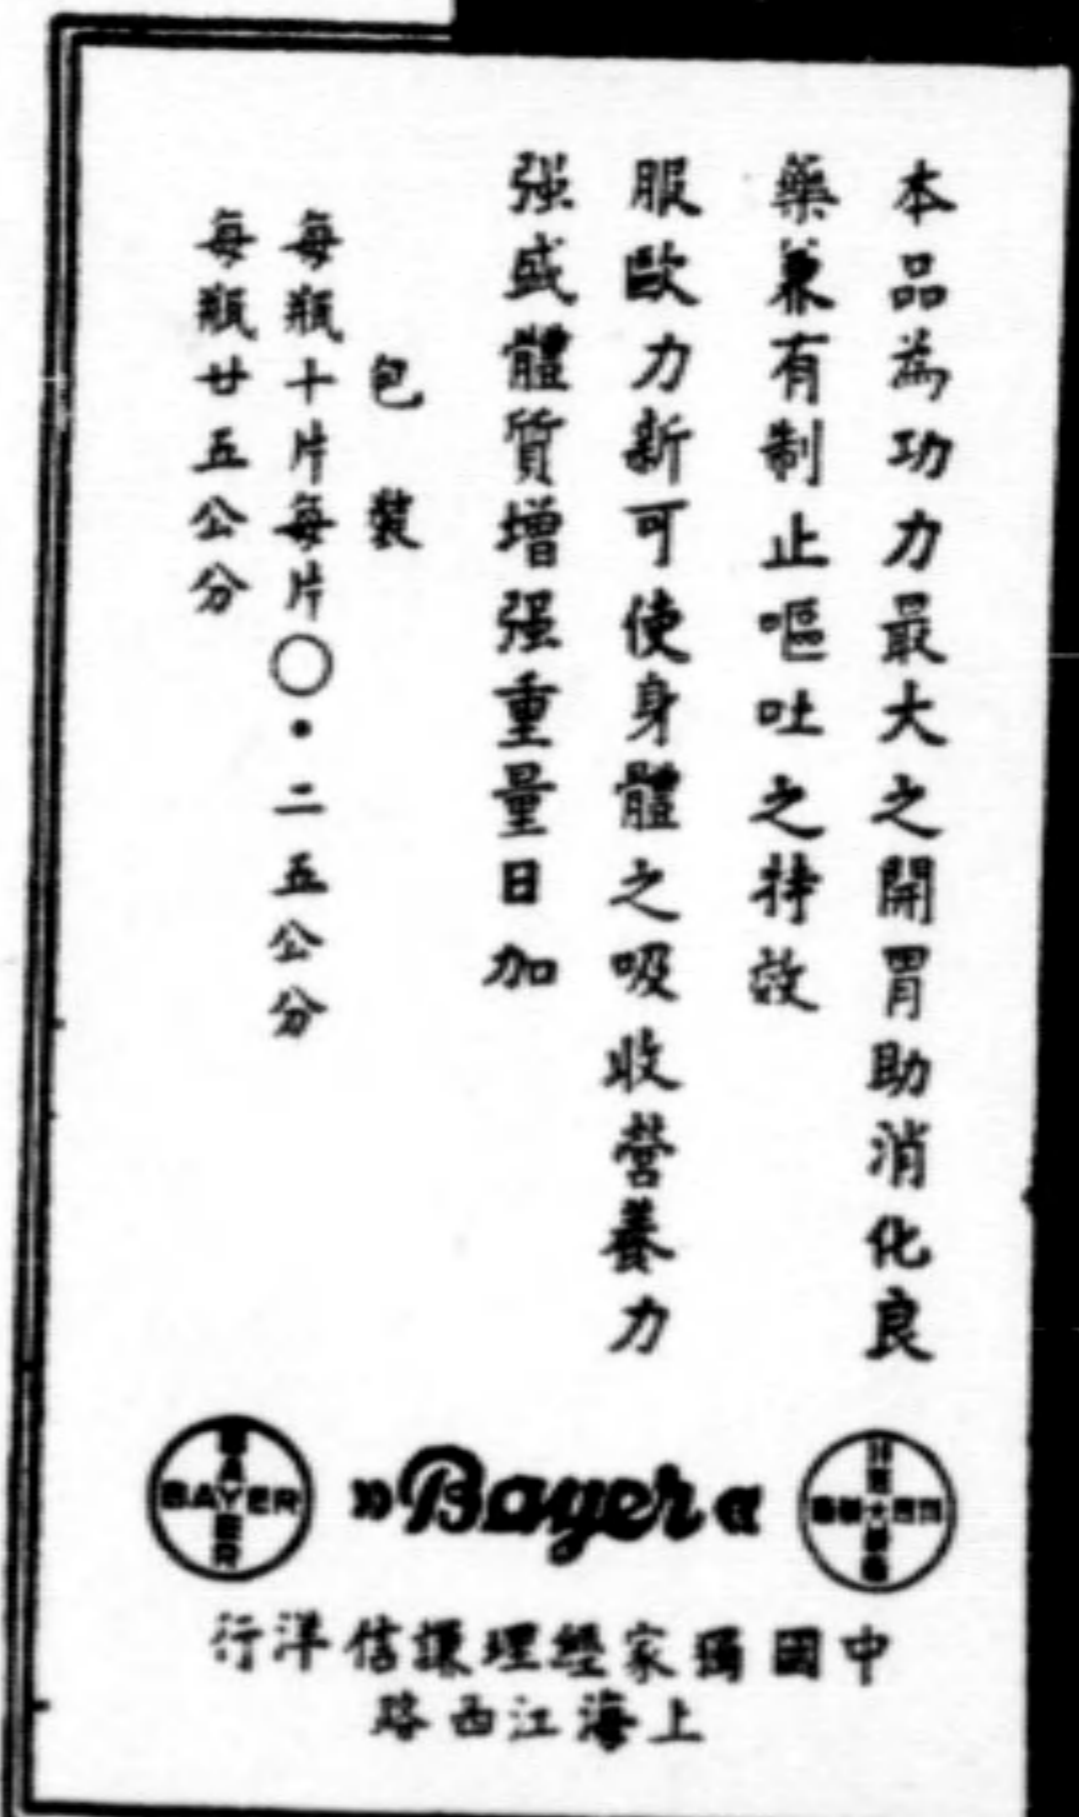 本品為功力最大之開胃助消化良
藥兼有制止嘔吐之特效
服歐力新可使身體之吸收營養力
强盛體質增强重量日加
包裝
每瓶十片每片〇・二五公分
每瓶廿五公分
BAYER
BAYER
»Bayer«
中國獨家經理謙信洋行
上海江西路